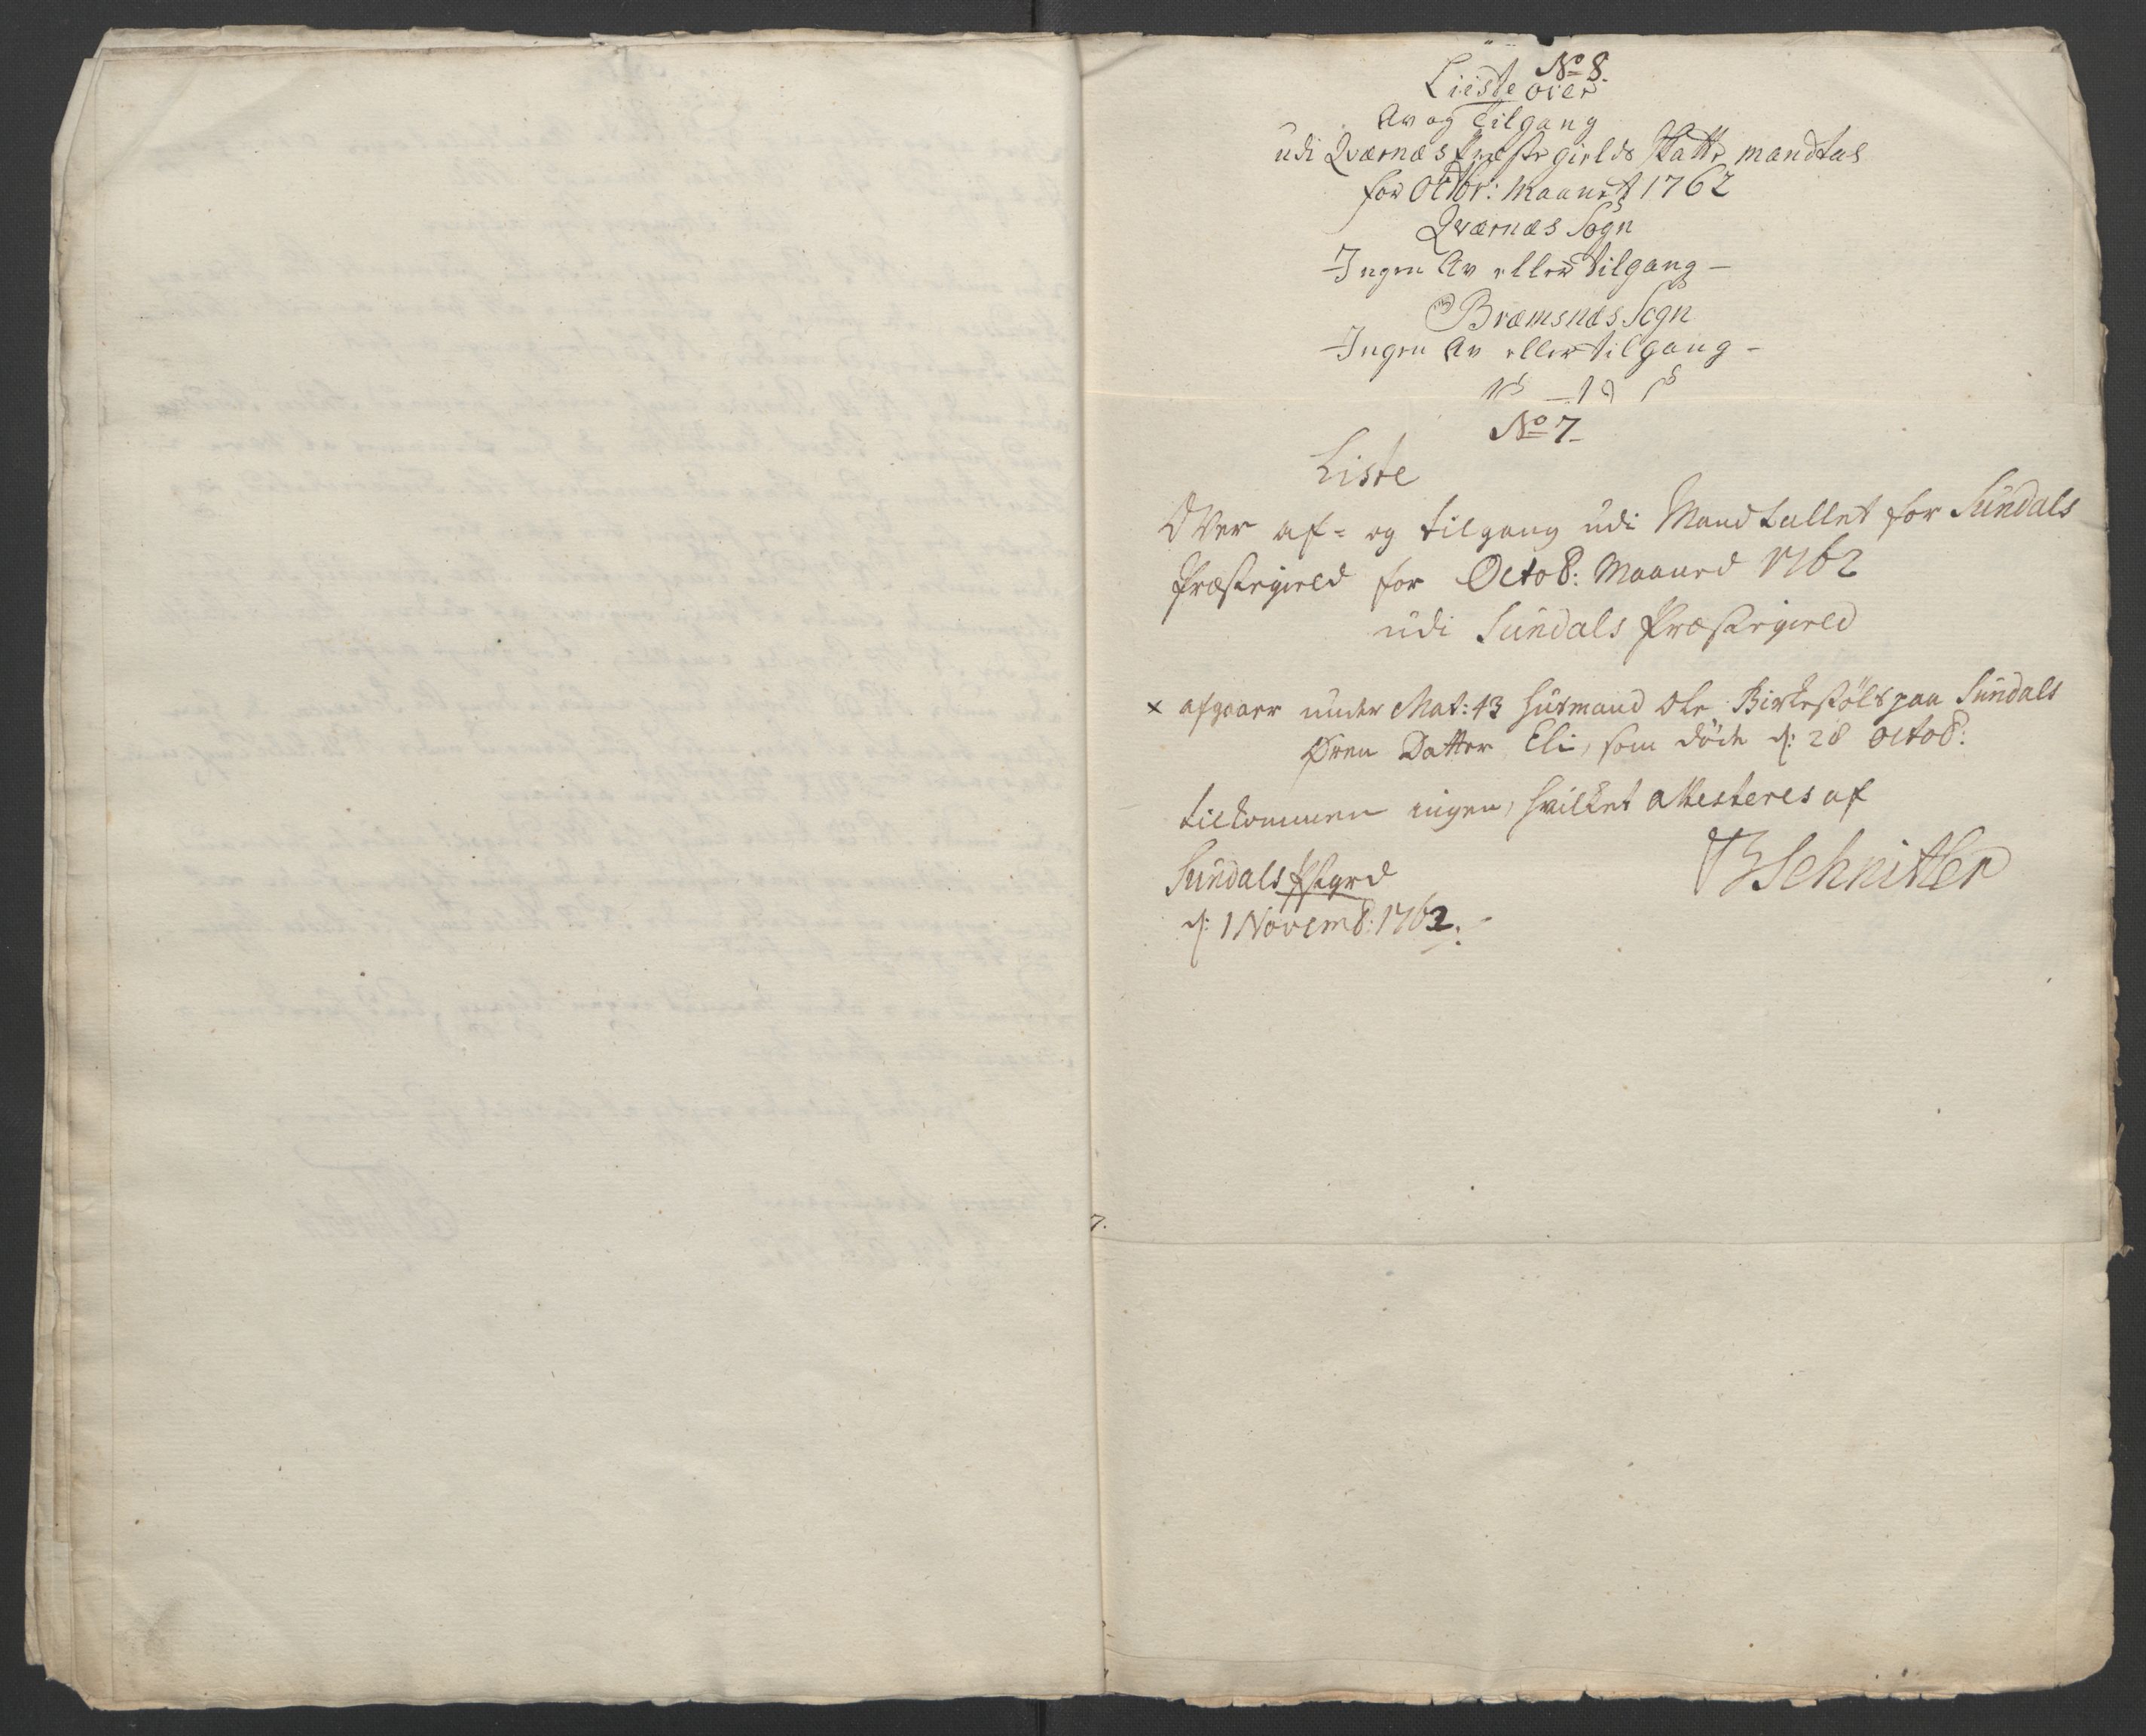 No 8.
Lieste over
Av og Tilgang
udi Qværnæs Præstegields Skatte mandtal
for Octbr: Maanet 1762
Qværnæs Sogn
Ingen Av eller tilgang -
Bræmsnæs Sogn
Ingen Av eller tilgang -
No 7
Liste
Over af- og tilgang udi Mandtallet for Sundals
Præstegield for Octo8: Maaned 1762
udi Sundals Præstegield
x afgaaer under Mat: 43 Huusmand Ole Birkestöls paa Sundals
Øren Datter Eli, som döde d: 28 Octo8:
tilkommen ingen, hvilket attesteres af
Sundals Pstgrd
TBSchnitler
d: 1 Novem8: 1762.
7.